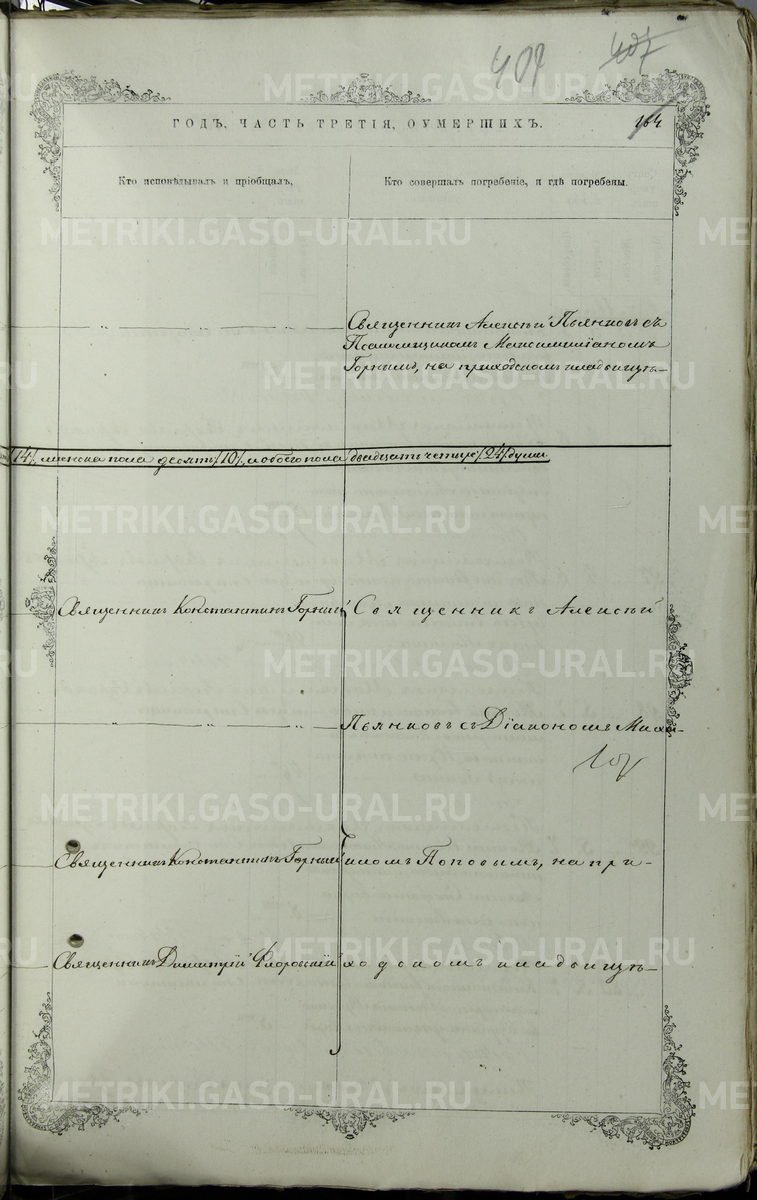 407
407
ГОДЪ, ЧАСТЬ ТРЕТІЯ, ОУМЕРШИХЪ.
164
Кто исповѣдывалъ и пріобщалъ,
Кто совершалъ погребеніе, и гдѣ погребены.
Священникъ Алексѣй Пьянковъ съ
Псаломщикомъ Максимиліаномъ
Горнымъ, на приходскомъ кладбищѣ
/14/, женска пола десять /10/, и обоего пола двадцать четыре /24/ души.
Священникъ Константинъ Горный
Священникъ Алексѣй
Пьянковъ съ Діакономъ Миха-
Священникъ Константинъ Горный
иломъ Поповымъ, на при-
Священникъ Димитрій Флоровскій
ходскомъ кладбищѣ
METRIKI.GASO-URAL.RU